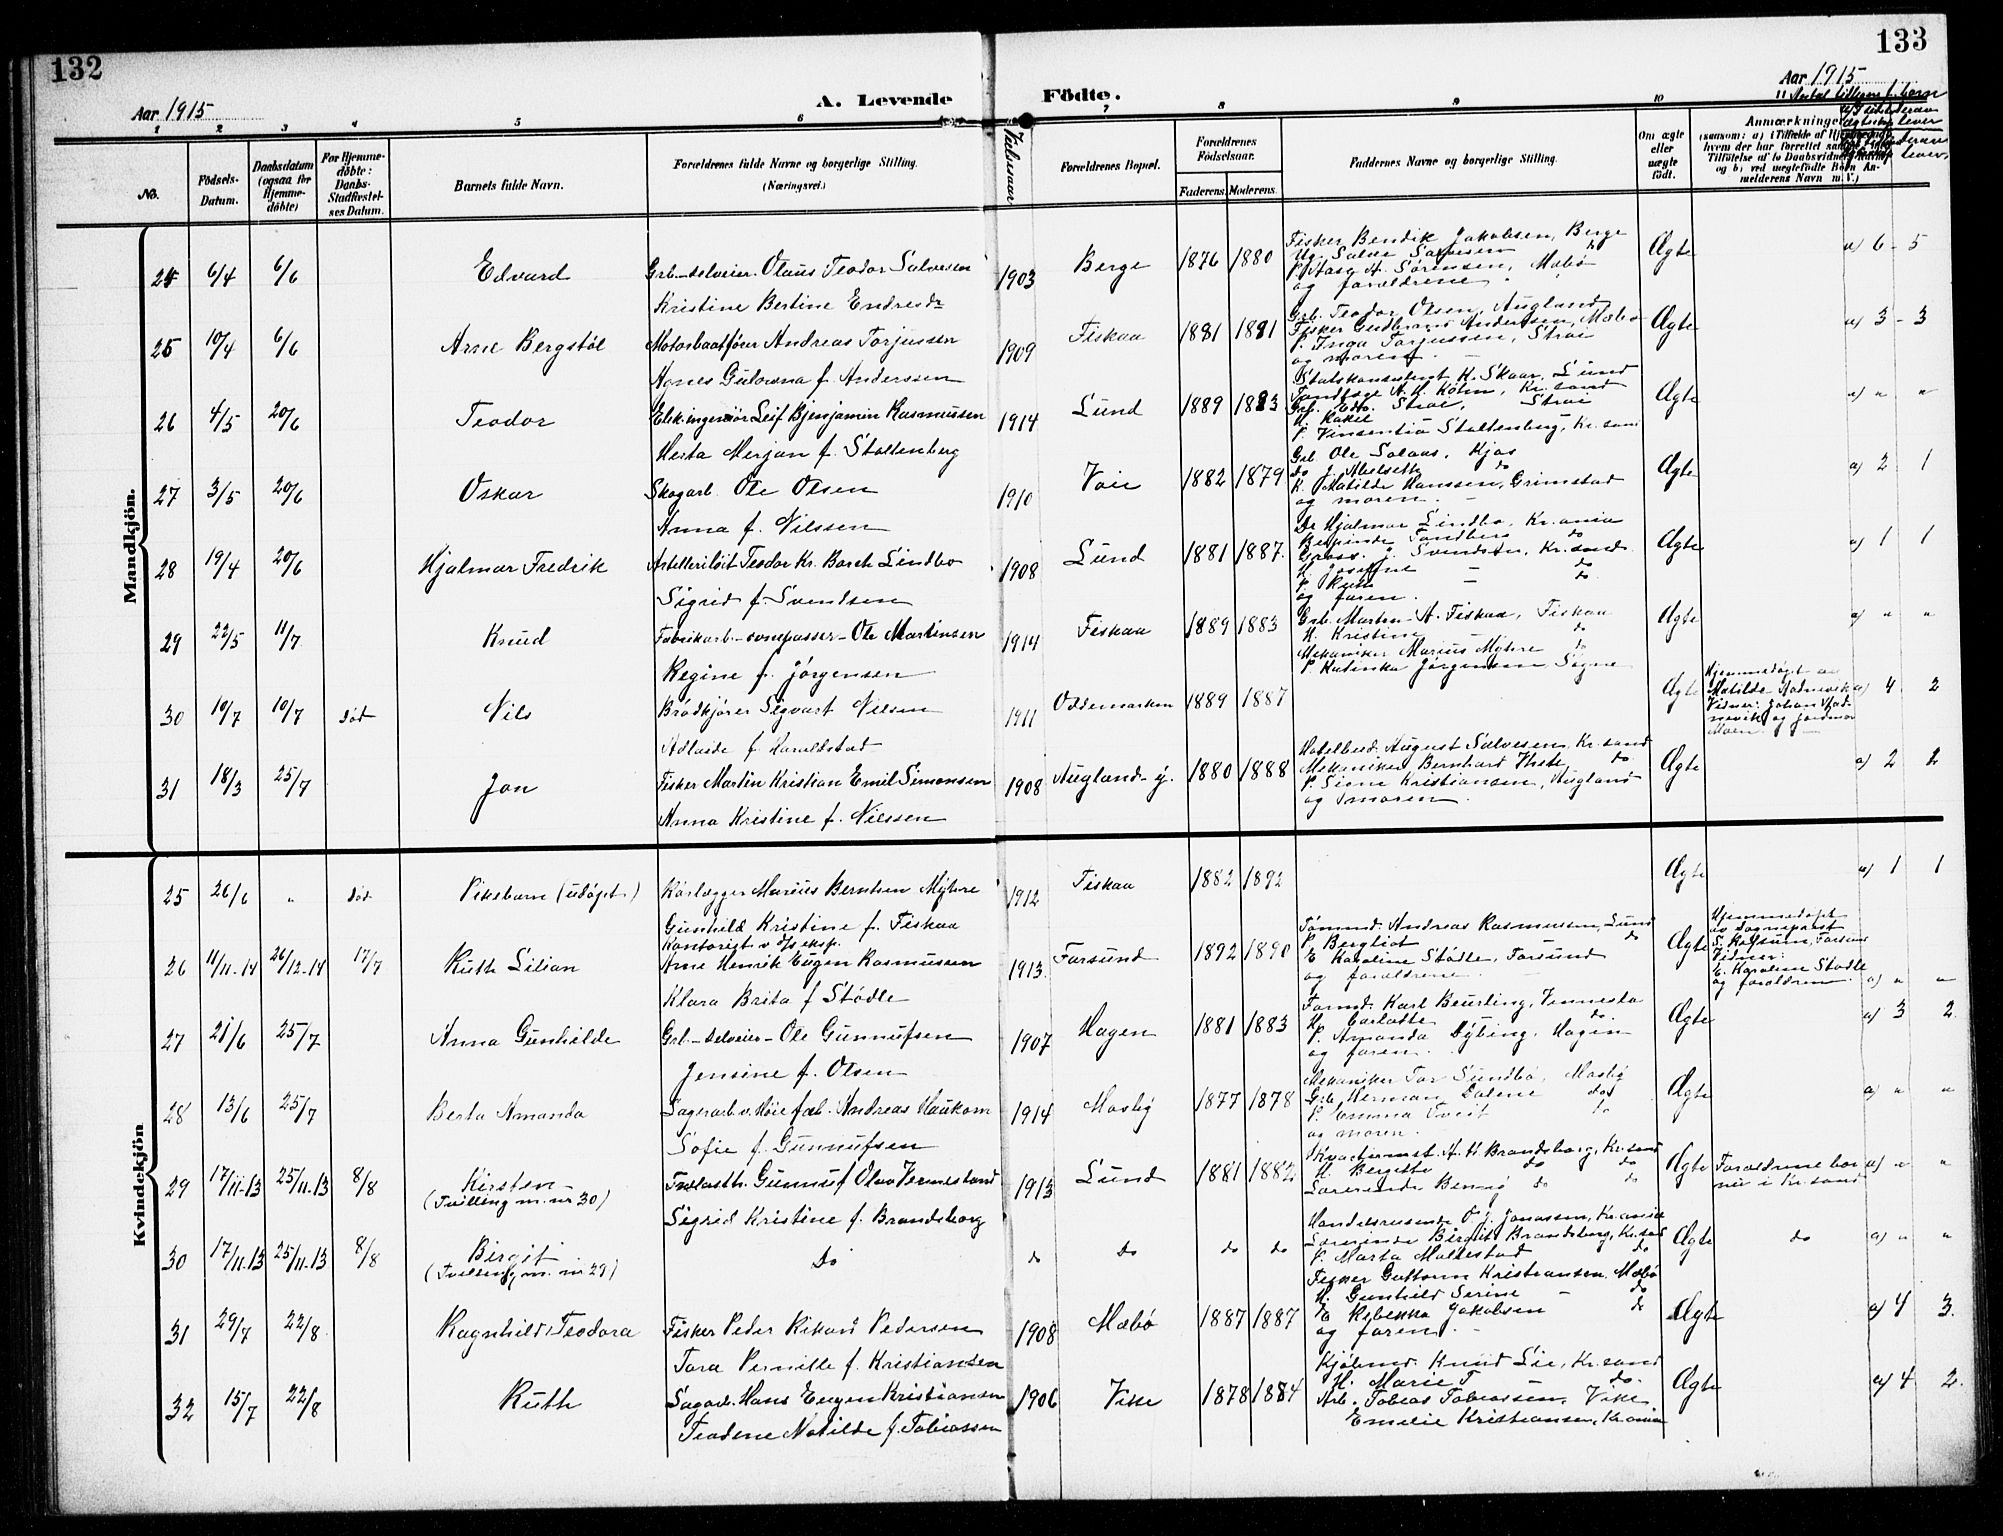 132
133
Aar 1915
A. Levende Födte.
Aar 1915
1 2 3 4 5 6 7 8 9 10 11
No.
Födsels-Datum.
Daabsdatum (ogsaa för Hjemme-döbte)
For Hjemme-döbte: Daabs-Stadfæstel-ses Datum.
Barnets fulde Navn.
Forældrenes fulde Navne og borgerlige Stilling.
(Næringsvei.)
Vielsesaar
Forældrenes Bopæl.
Forældrenes Födselsaar.
Faderens. Moderens.
Faddernes Navne og borgerlige Stilling.
Om ægte eller uægte födt.
Mandkjön.
24 6/4 6/6 Edvard Grb.-selveier Olaus Teodor Salvesen 1903 Berge 1876 1880 Fisker Bendik Jakobsen, Berge Ægte a) 6 - 5
Ug. Salve Salvesen do
P. Aasa A. Sørensen, Mæbø
og forældrene
Kristine Bertine Endresdr
25 10/4 6/6 Arne Bergstøl Motorbaatfører Andreas Torjussen 1909 Fiskaa 1881 1881 Grb. Teodor Olsen, Augland Ægte a) 3 - 3
Fisker Gudbrand Andersen, Mæbø
P. Inga Torjussen, Strai
og moren
Agnes Gulovna f. Anderssen
26 4/5 20/6 Teodor Elek.ingeniør Leif Bjenjamin Rasmussen 1914 Lund 1889 1883 Statskonsulent K. Skaar, Lund Ægte a) " "
Tandlæge A. H. Holm, Kr.sand
Grb. Edv. Strai, Strai
P. Vinsentia Stoltenberg, Kr.sand
Herta Merjan f. Stoltenberg
27 3/5 20/6 Oskar Skogarb. Ole Olsen 1910 Voie 1882 1879 Grb Ole Solaas, Kjos Ægte a) 2 1
do J. Abelseth do
K. Matilde Hanssen, Grimstad
og moren.
Anna f. Nilssen
28 19/4 20/6 Hjalmar Fredrik Artilleriløit Teodor Kr. Borch Lindbo 1908 Lund 1881 1887. Dr Hjalmar Lindbo, Kr.ania Ægte a) 1 1
Gross. J. Svendsen, Kr.sand
H. Josefine - do
og faren.
Sigrid f. Svendsen
29 22/5 11/7 Knud Fabrikarb.-ovnspasser- Ole Martinsen 1914 Fiskaa 1889 1883 Grb. Martin A. Fiskaa, Fiskaa Ægte a) " "
H. Kristine - do
Mekaniker Marius Myhre do
P. Katinka Jørgensen Søgne
Regine f. Jørgensen
30 10/7 10/7 død Nils Brødkjører Sigvart Nilsen 1911 Oddemarken 1889 1887 Ægte Hjemmedøpt av a) 4 2
Adlaide f. Haraldstad
31 18/3 25/7 Jon Fisker Martin Kristian Emil Simonsen 1908 Augland-ý. 1880 1888 Hotelbest. August Salvesen, Kr.sand Ægte a) 2 2
Mekaniker Bernhard Thste do
P. Signe Kristiansen, Augland
og moren.
Anna Kristine f. Nilssen
Kvindekjön
25 26/6 " død Pikebarn (udøpt) Rørlægger Marius Berntsen Myhre 1912 Fiskaa 1882 1892 Ægte a) 1 1
Gunhild Kristine f. Fiskaa
Kontorist v d/s eksp.
26 11/11-14 26/12-14 17/7 Ruth Lilian Arne Henrik Eugen Rasmussen 1913. Farsund 1892 1890 Tømmd. Andreas Rasmussen, Lund Ægte Hjemmedøpt
P. Bergliot do av sogneprest
E Karoline Stødle, Farsund
og forældrene - Vidner:
E. Karoline Stødle
og forældrene. a) " "
Klara Brita f Stødle
27 21/6 25/7 Anna Gunhilde Grb-selveier- Ole Gunnufsen 1907 Hagen 1881 1883 Formd. Karl Beurling, Vennesla Ægte a) 3 2.
H. Carlotte do.
P. Amanda Dybing, Hagen
og faren.
Jensine f. Olsen
28 13/6 25/7 Berta Amanda Lagerarb. v. Høie fab. Andreas Haukom 1914 Mosby 1877 1878 Mekaniker Tor Sundbø, Mosby Ægte a) " "
Grb. Herman Dalene do
P. Emma Tveit do
og moren.
Sofie f. Gunnufsen
29 17/11.13 25/11.13 8/8 Kirsten Gunnuf Olav Vermesland 1913 Lund 1881 1882. A. H. Brandsborg, Kr.sand Ægte Forældrene bor a) " "
(Tvilling m. nr 30) H. Bergitte do do nu i Kr.sand
Lærerinde do do
Sigrid Kristine f. Brandsborg
30 17/11.13 25/11.13 8/8 Birgit Do do do do do Handelsreisende O. J. Jonassen, Kr.ania Ægte do a) " "
(Tvilling m. nr 29) Lærerinde Birgit Brandsborg, Kr.sand
P. Marta Mollestad do
31 29/7 22/8 Ragnhild Teodora Fisker Peder Rikard Pedersen 1908 Mæbø 1887 1887 Fisker Guttorm Kristiansen. Mæbø Ægte a) 4 3.
H. Gunhild Serine - do
E Rebekka Jakobsen do
og faren.
Tora Pernille f. Kristiansen
32 15/7 22/8 Ruth Sagarb. Hans Eugen Kristiansen 1906 Vike 1878 1884 Kjøbmd. Knud Lie, Kr.sand Ægte a) 4 2.
H. Marie T do.
Arb. Tobias Tobiassen, Vike
Emelie Kristiansen, Kr.ania
Teodene Matilde f. Tobiassen